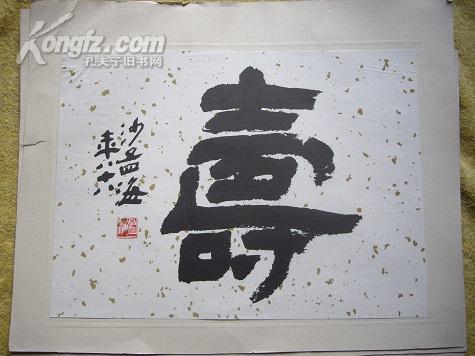 Kongfz.com
孔夫子旧书网
壽
沙孟海
年八十八